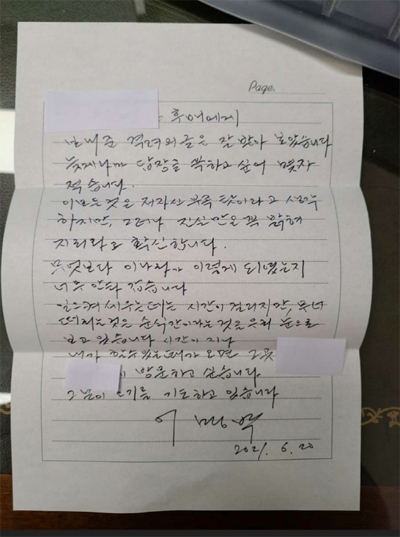 Page.
후배에게
보내준 격려의 글은 잘 받아 보았습니다
늦게나마 답장을 꼭 하고 싶어 몇자
적습니다.
이 모든 것은 저 자신 부족 탓이라고 생각
하지만, 그러나 진실만은 꼭 밝혀
지리라고 확신합니다.
무엇보다 이 나라가 이렇게 되었는지
너무 안타깝습니다
일으켜 세우는데는 시간이 걸리지만, 무너
뜨리는 것은 순식간이라는 것을 눈으로
보고 있습니다 시간이 지나
내가 할 수 있는 때가 오면 그 곳
방문하고 싶습니다
그 날이 오기를 기도하고 있습니다
이 명 박
2021. 6. 20